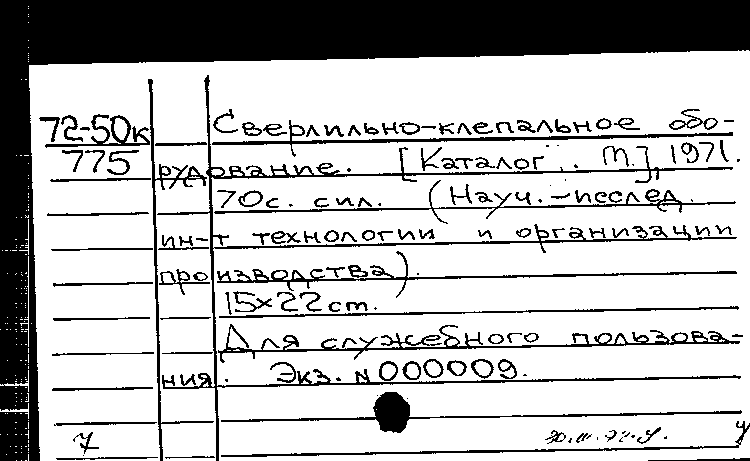 72-50к
775
Сверлильно-клепальное обо-
рудование. [Каталог. М.], 1971.
70с. с ил. (Науч.-исслед.
ин-т технологии и организации
производства).
15×22 cm.
Для служебного пользова-
ния. Экз. N 000009.
7